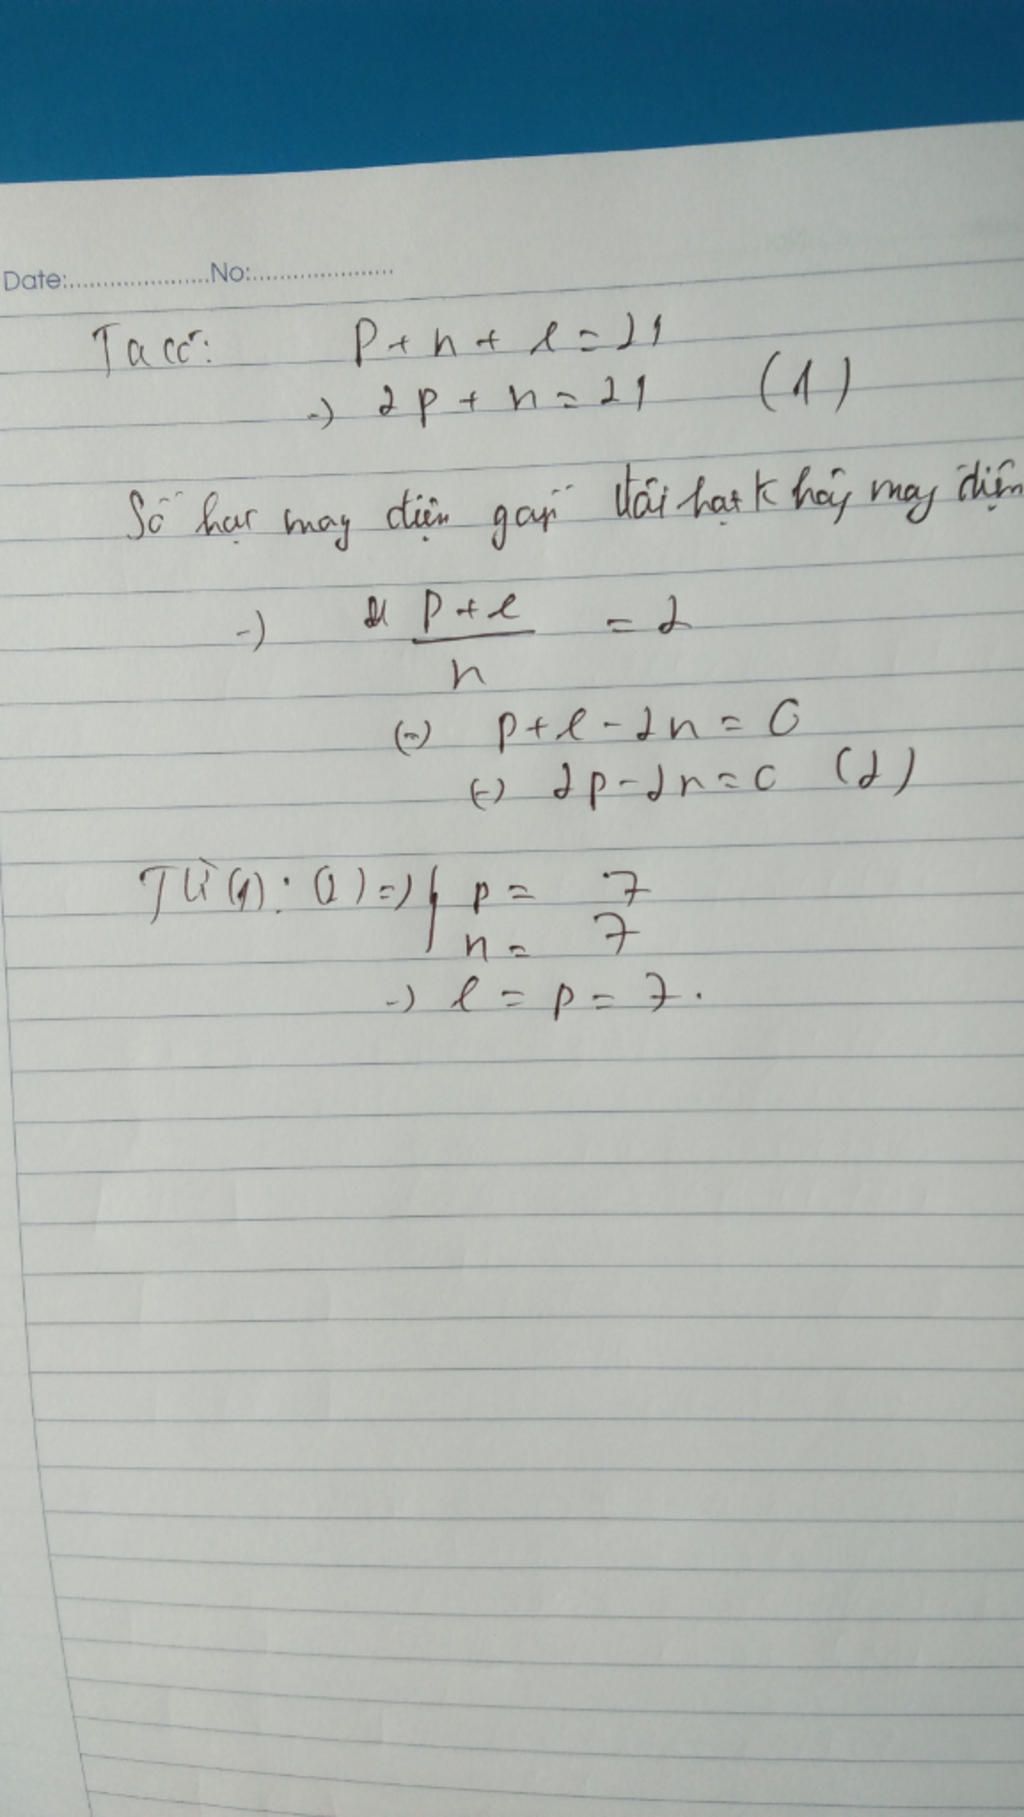 Date:......................No:......................
Ta có: p + n + e = 21
-) 2p + n = 21 (1)
Số hạt mag điện gấp hai hạt không mag điện
-) p + e / n = 2
(=) p + e - 2n = 0
(=) 2p - 2n = 0 (2)
Từ (1): (2) =) { p = 7
n = 7
-) e = p = 7.